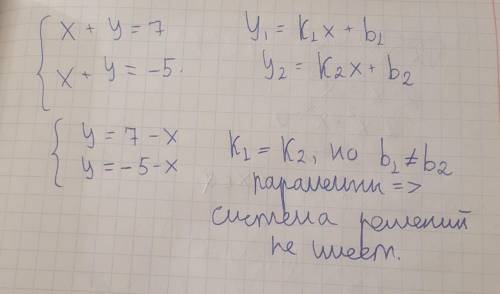 x + y = 7
x + y = -5.
y₁ = k₁x + b₁
y₂ = k₂x + b₂
y = 7 - x
y = -5 - x
k₁ = k₂, но b₁ ≠ b₂
=>
система решений
не имеет.